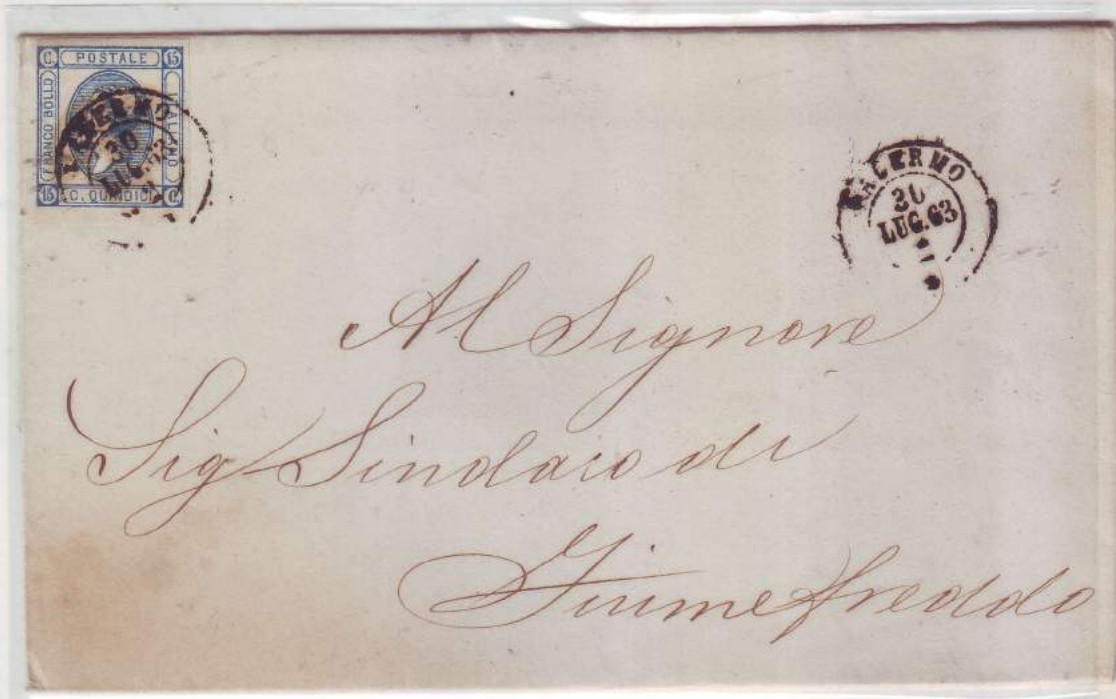 C. POSTALE 15
FRANCO BOLLO
ITALIANO
15 C. QUINDICI C.
PALERMO
30
LUG. 63
PALERMO
30
LUG. 63
Al Signore
Sig Sindaco di
Fiumefreddo